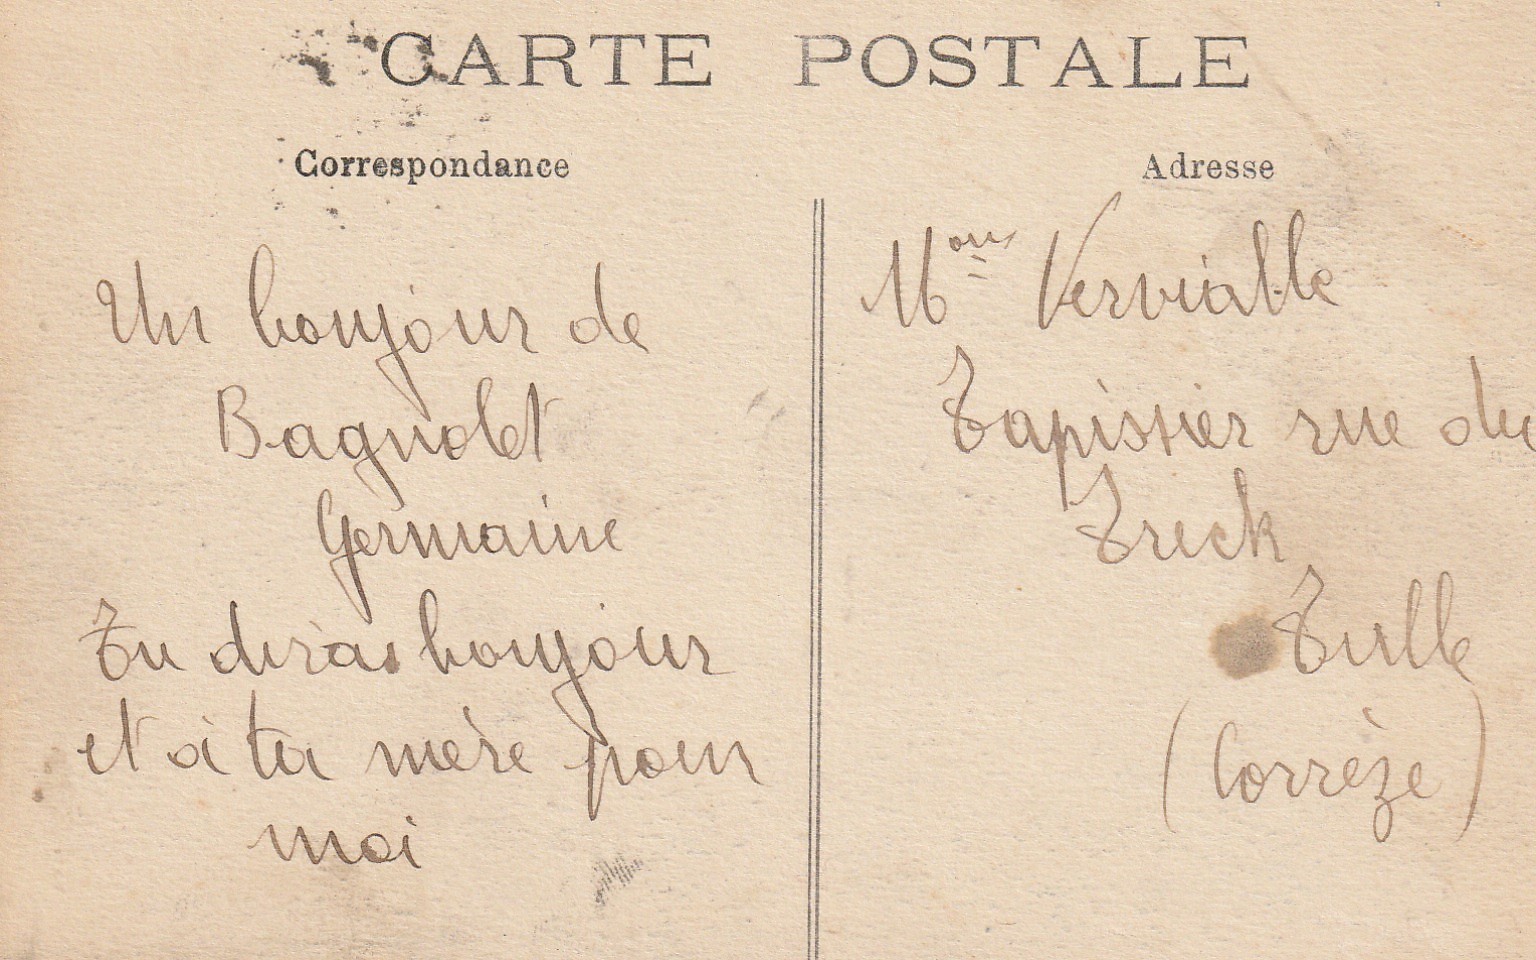 CARTE POSTALE
Correspondance
Un bonjour de
Bagnolet
Germaine
Tu diras bonjour
et à ta mère pour
moi
Adresse
Vervialle
Tapissier rue du
Treck
Tulle
(Corrèze)